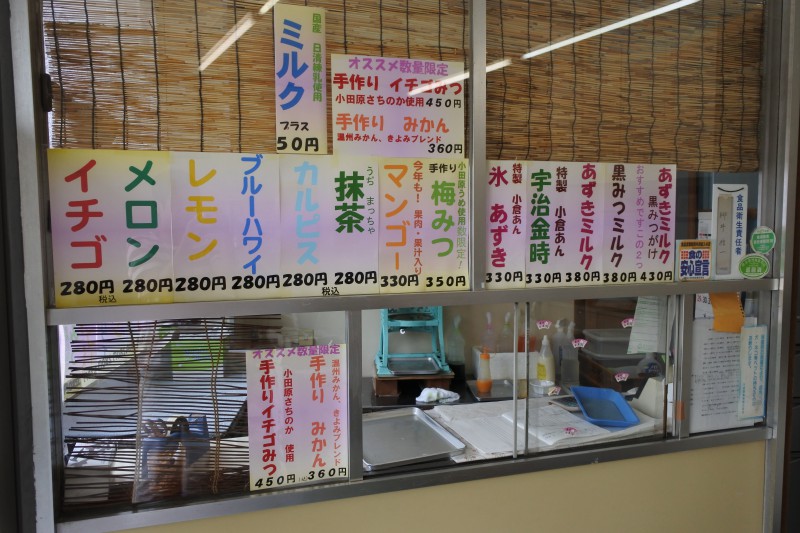 国産 日清練乳使用
ミルク
プラス
50円
オススメ数量限定
手作り イチゴみつ
小田原さちのか使用 450円
手作り みかん
温州みかん、きよみブレンド
360円
イチゴ
280円
税込
メロン
280円
レモン
280円
ブルーハワイ
280円
カルピス
280円
うじ まっちゃ
抹茶
280円
税込
マンゴー
今年も!果肉・果汁入り
330円
小田原うめ使用数量限定!
手作り
梅みつ
350円
特製 小倉あん
氷 あずき
330円
特製 小倉あん
宇治金時
330円
あずきミルク
380円
黒みつミルク
380円
あずきミルク
黒みつがけ
おすすめですこの2つ
430円
食品衛生責任者
食の
安心宣言
オススメ数量限定
温州みかん、きよみブレンド
手作り みかん
360円
小田原さちのか 使用
手作りイチゴみつ
450円